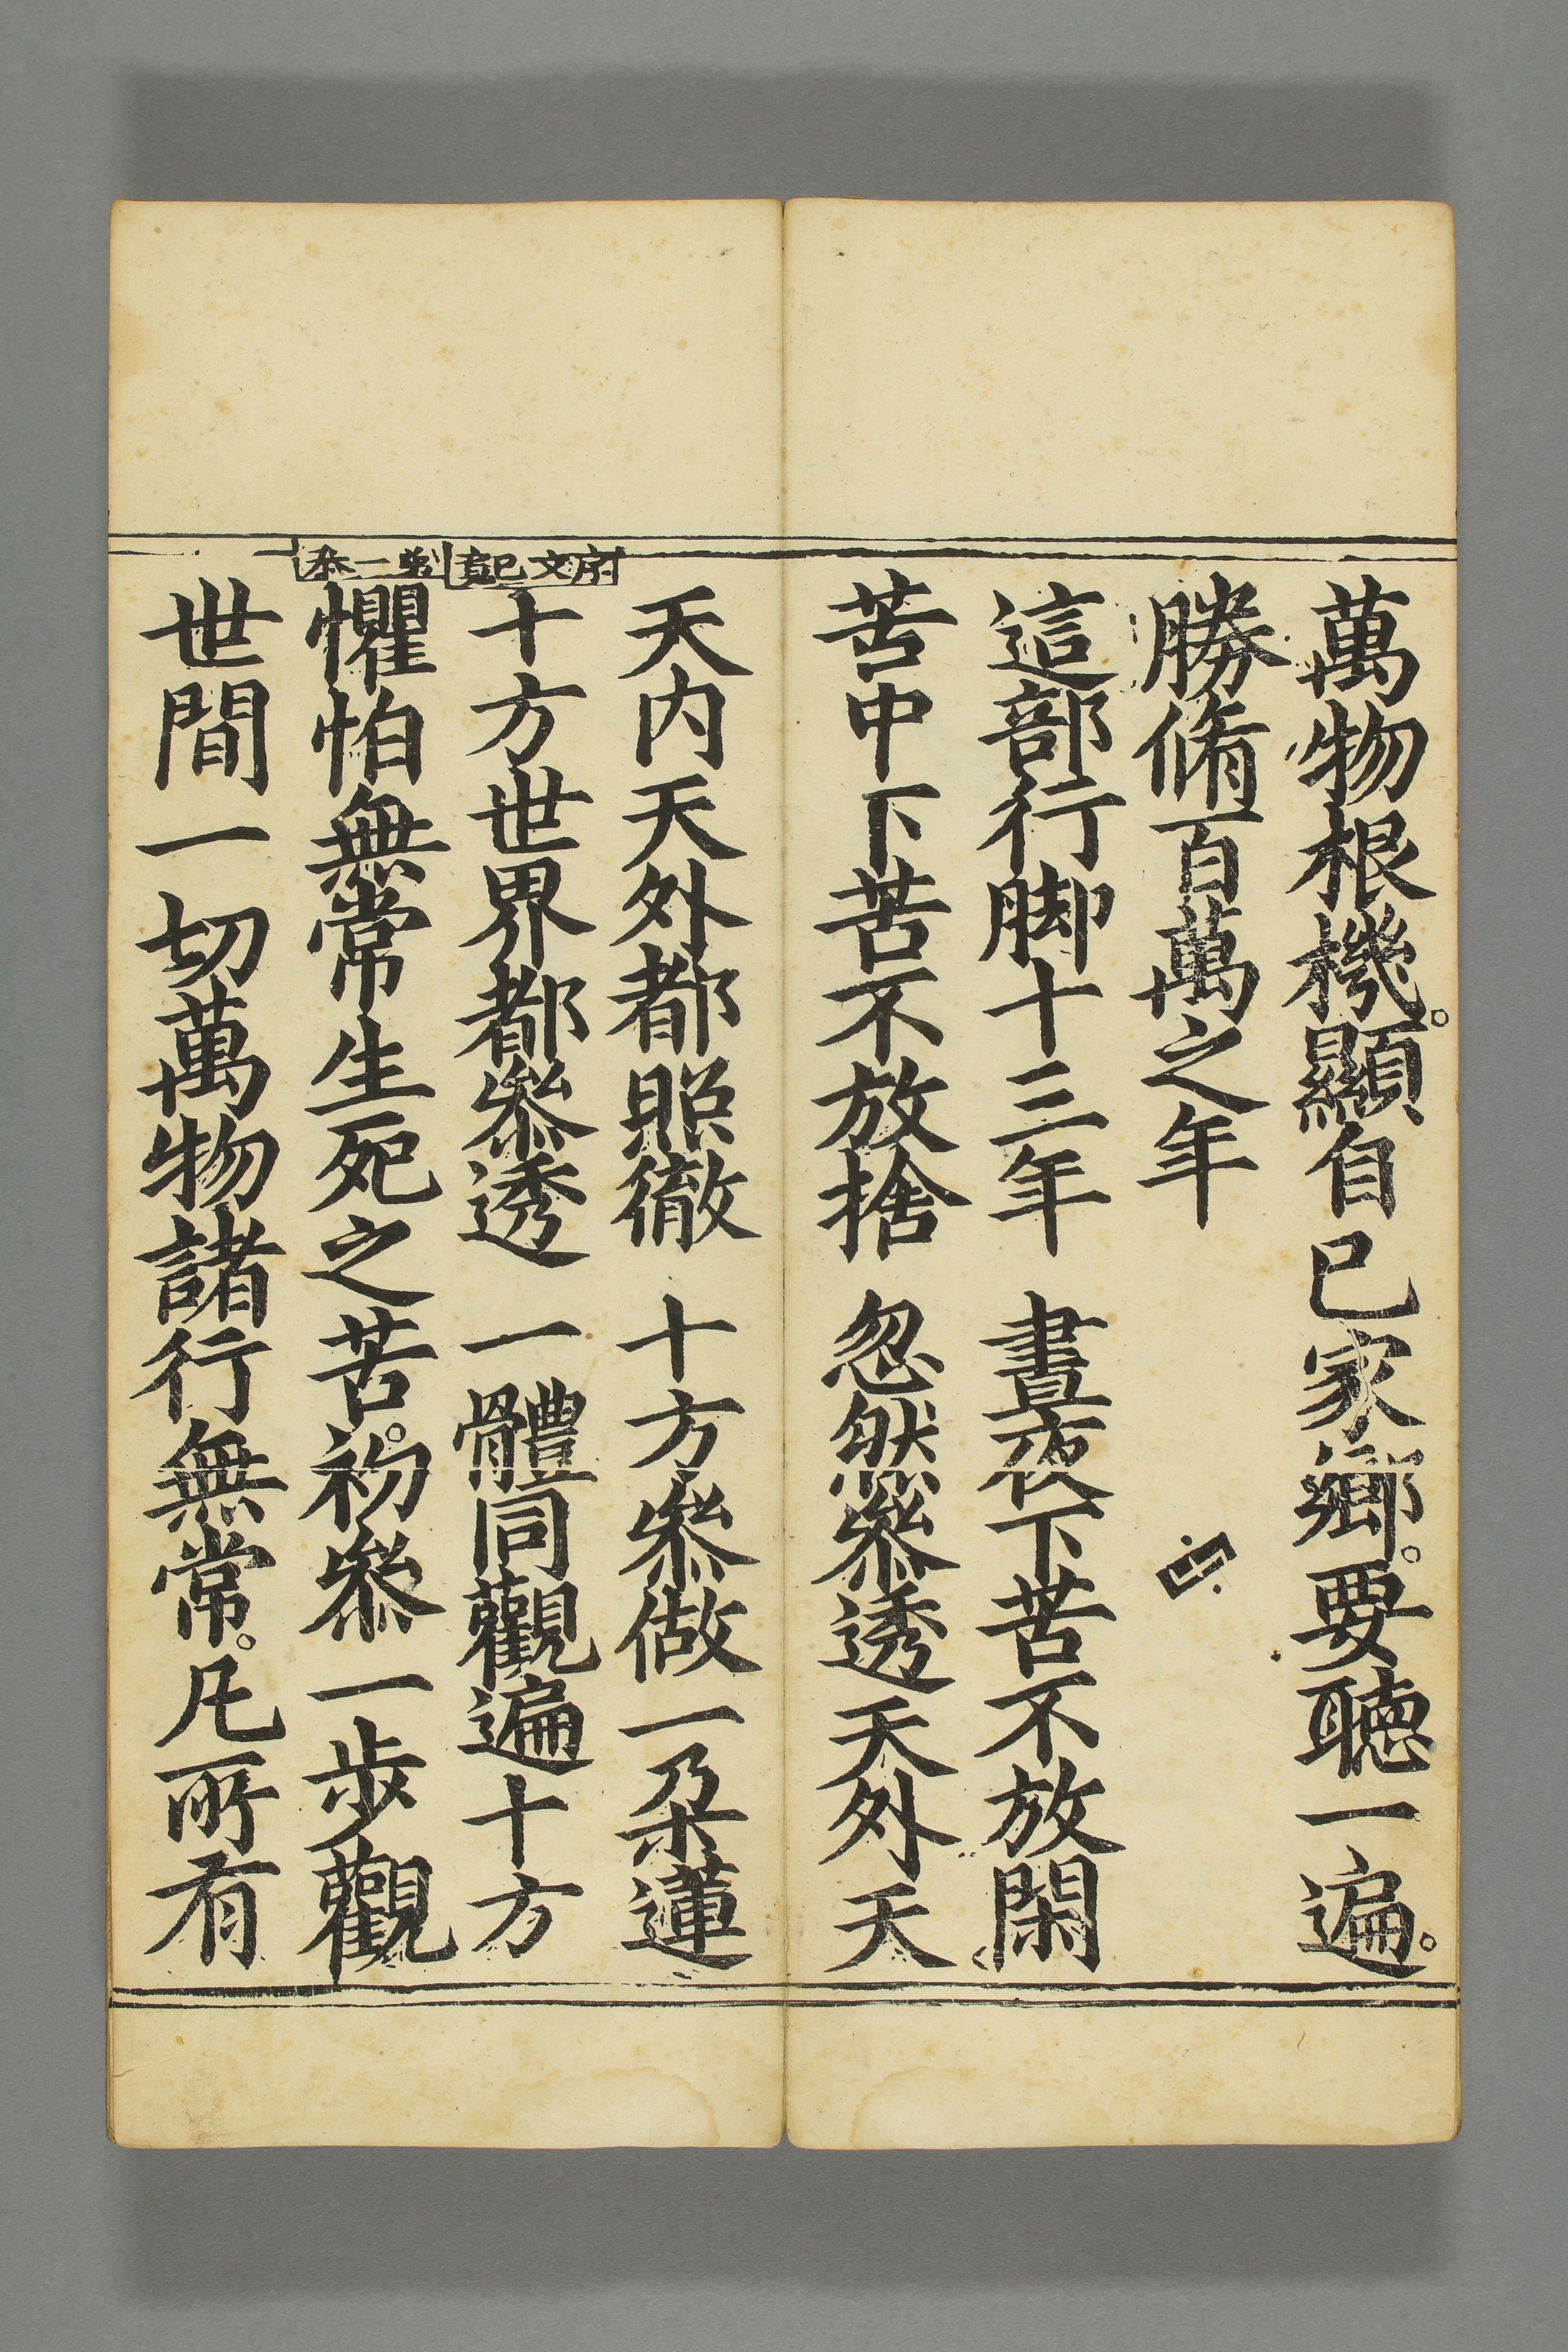 萬物根機。顯自己家鄉。要聽一遍。
勝脩百萬之年
這部行脚十三年　晝夜下苦不放閑
苦中下苦不放捨　忽然叅透天外天
天内天外都照徹　十方叅做一朶蓮
序文已畢　第一叅
十方世界都叅透　一體同觀遍十方
懼怕無常生死之苦。初叅一步觀
世間一切萬物諸行無常。凡所有